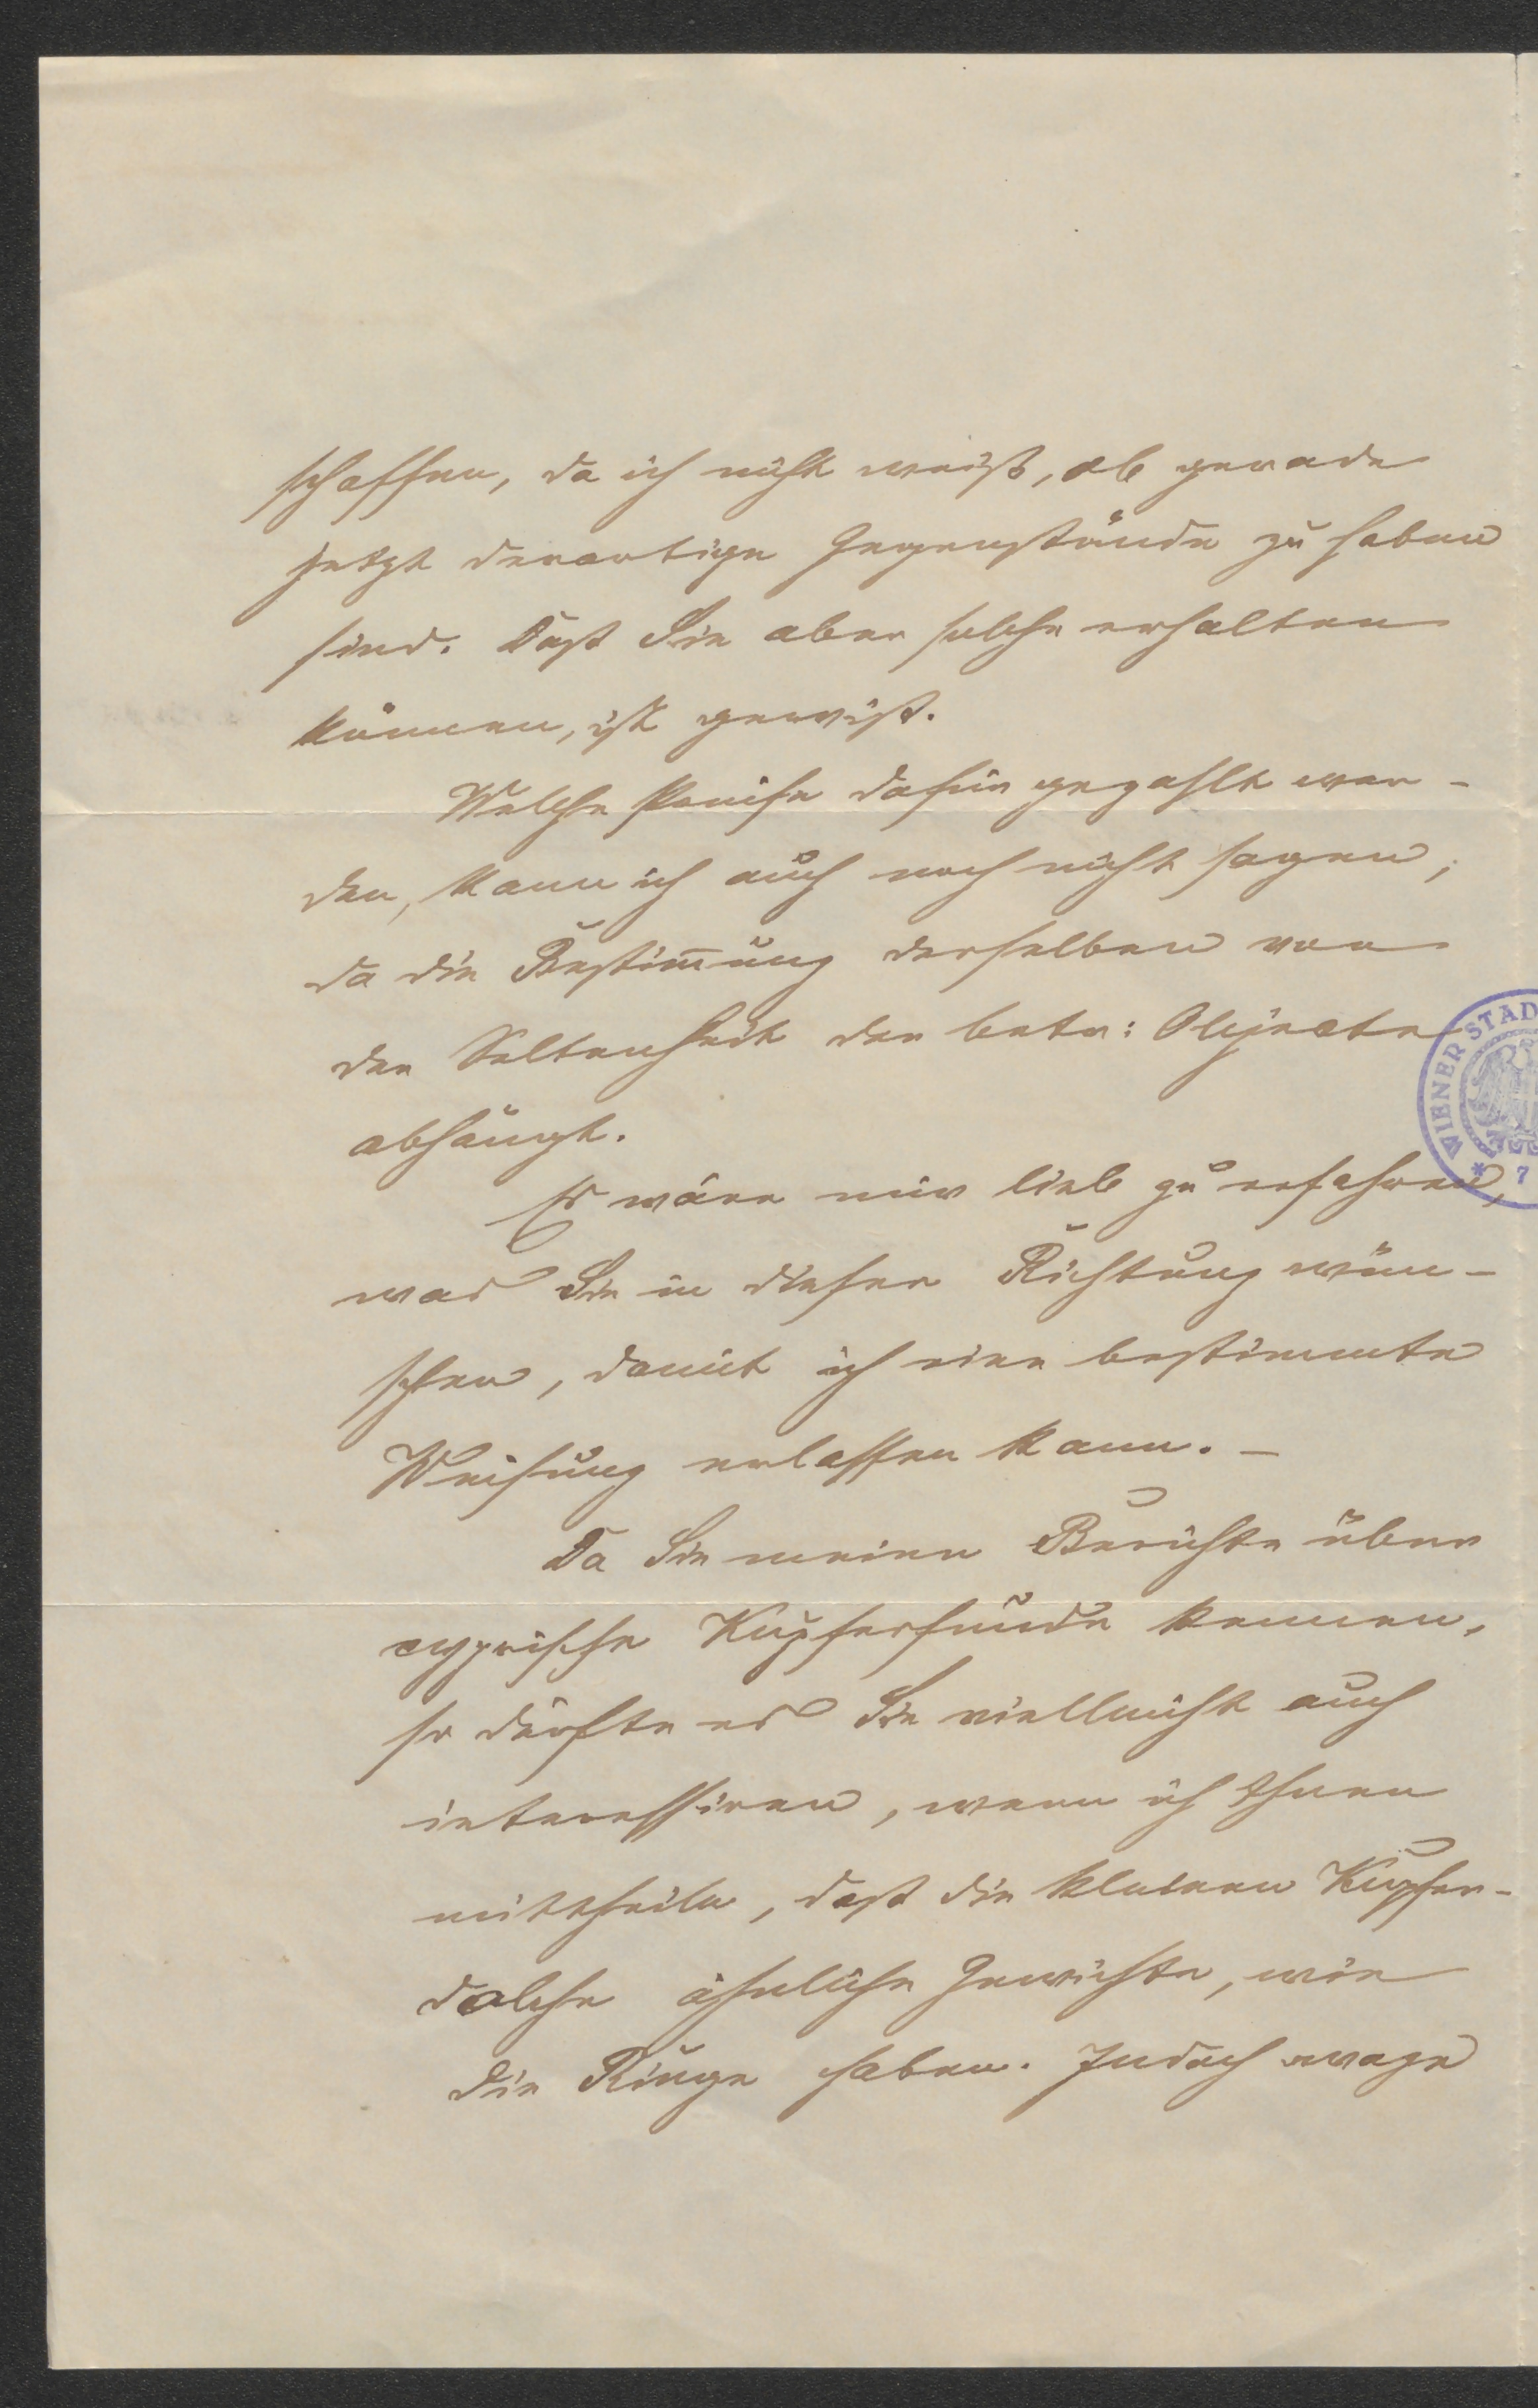 schaffen, da ich nicht weiß, ob gerade
jetzt derartige Gegenstände zu haben
sind. Daß Sie aber solche erhalten
können, ist gewiß.
Welche Preise dafür gezahlt wer-
den, kann ich auch noch nicht sagen,
da die Bestim̄ung derselben von
der Seltenheit der betr: Objecte
abhängt.
Es wäre mir lieb zu erfahren,
was Sie in dieser Richtung wün-
schen, damit ich eine bestimmte
Weisung erlassen kann. –
Da Sie meine Berichte über
cyprische Kupferfunde kennen,
so dürfte es Sie vielleicht auch
interessiren, wenn ich Ihnen
mittheile, daß die kleinen Kupfer-
dolche ähnliche Gewichte, wie
die Ringe haben. Jedoch wage
WIENER STAD
* 7